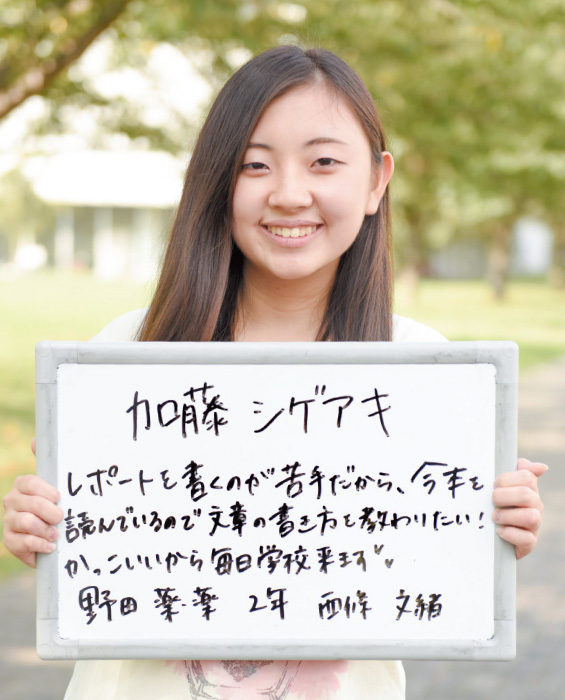 加藤 シゲアキ
レポートを書くのが苦手だから、今本を
読んでいるので文章の書き方を教わりたい!
かっこいいから毎日学校来ます♥♥
野田 薬・薬 2年 西條 文緒